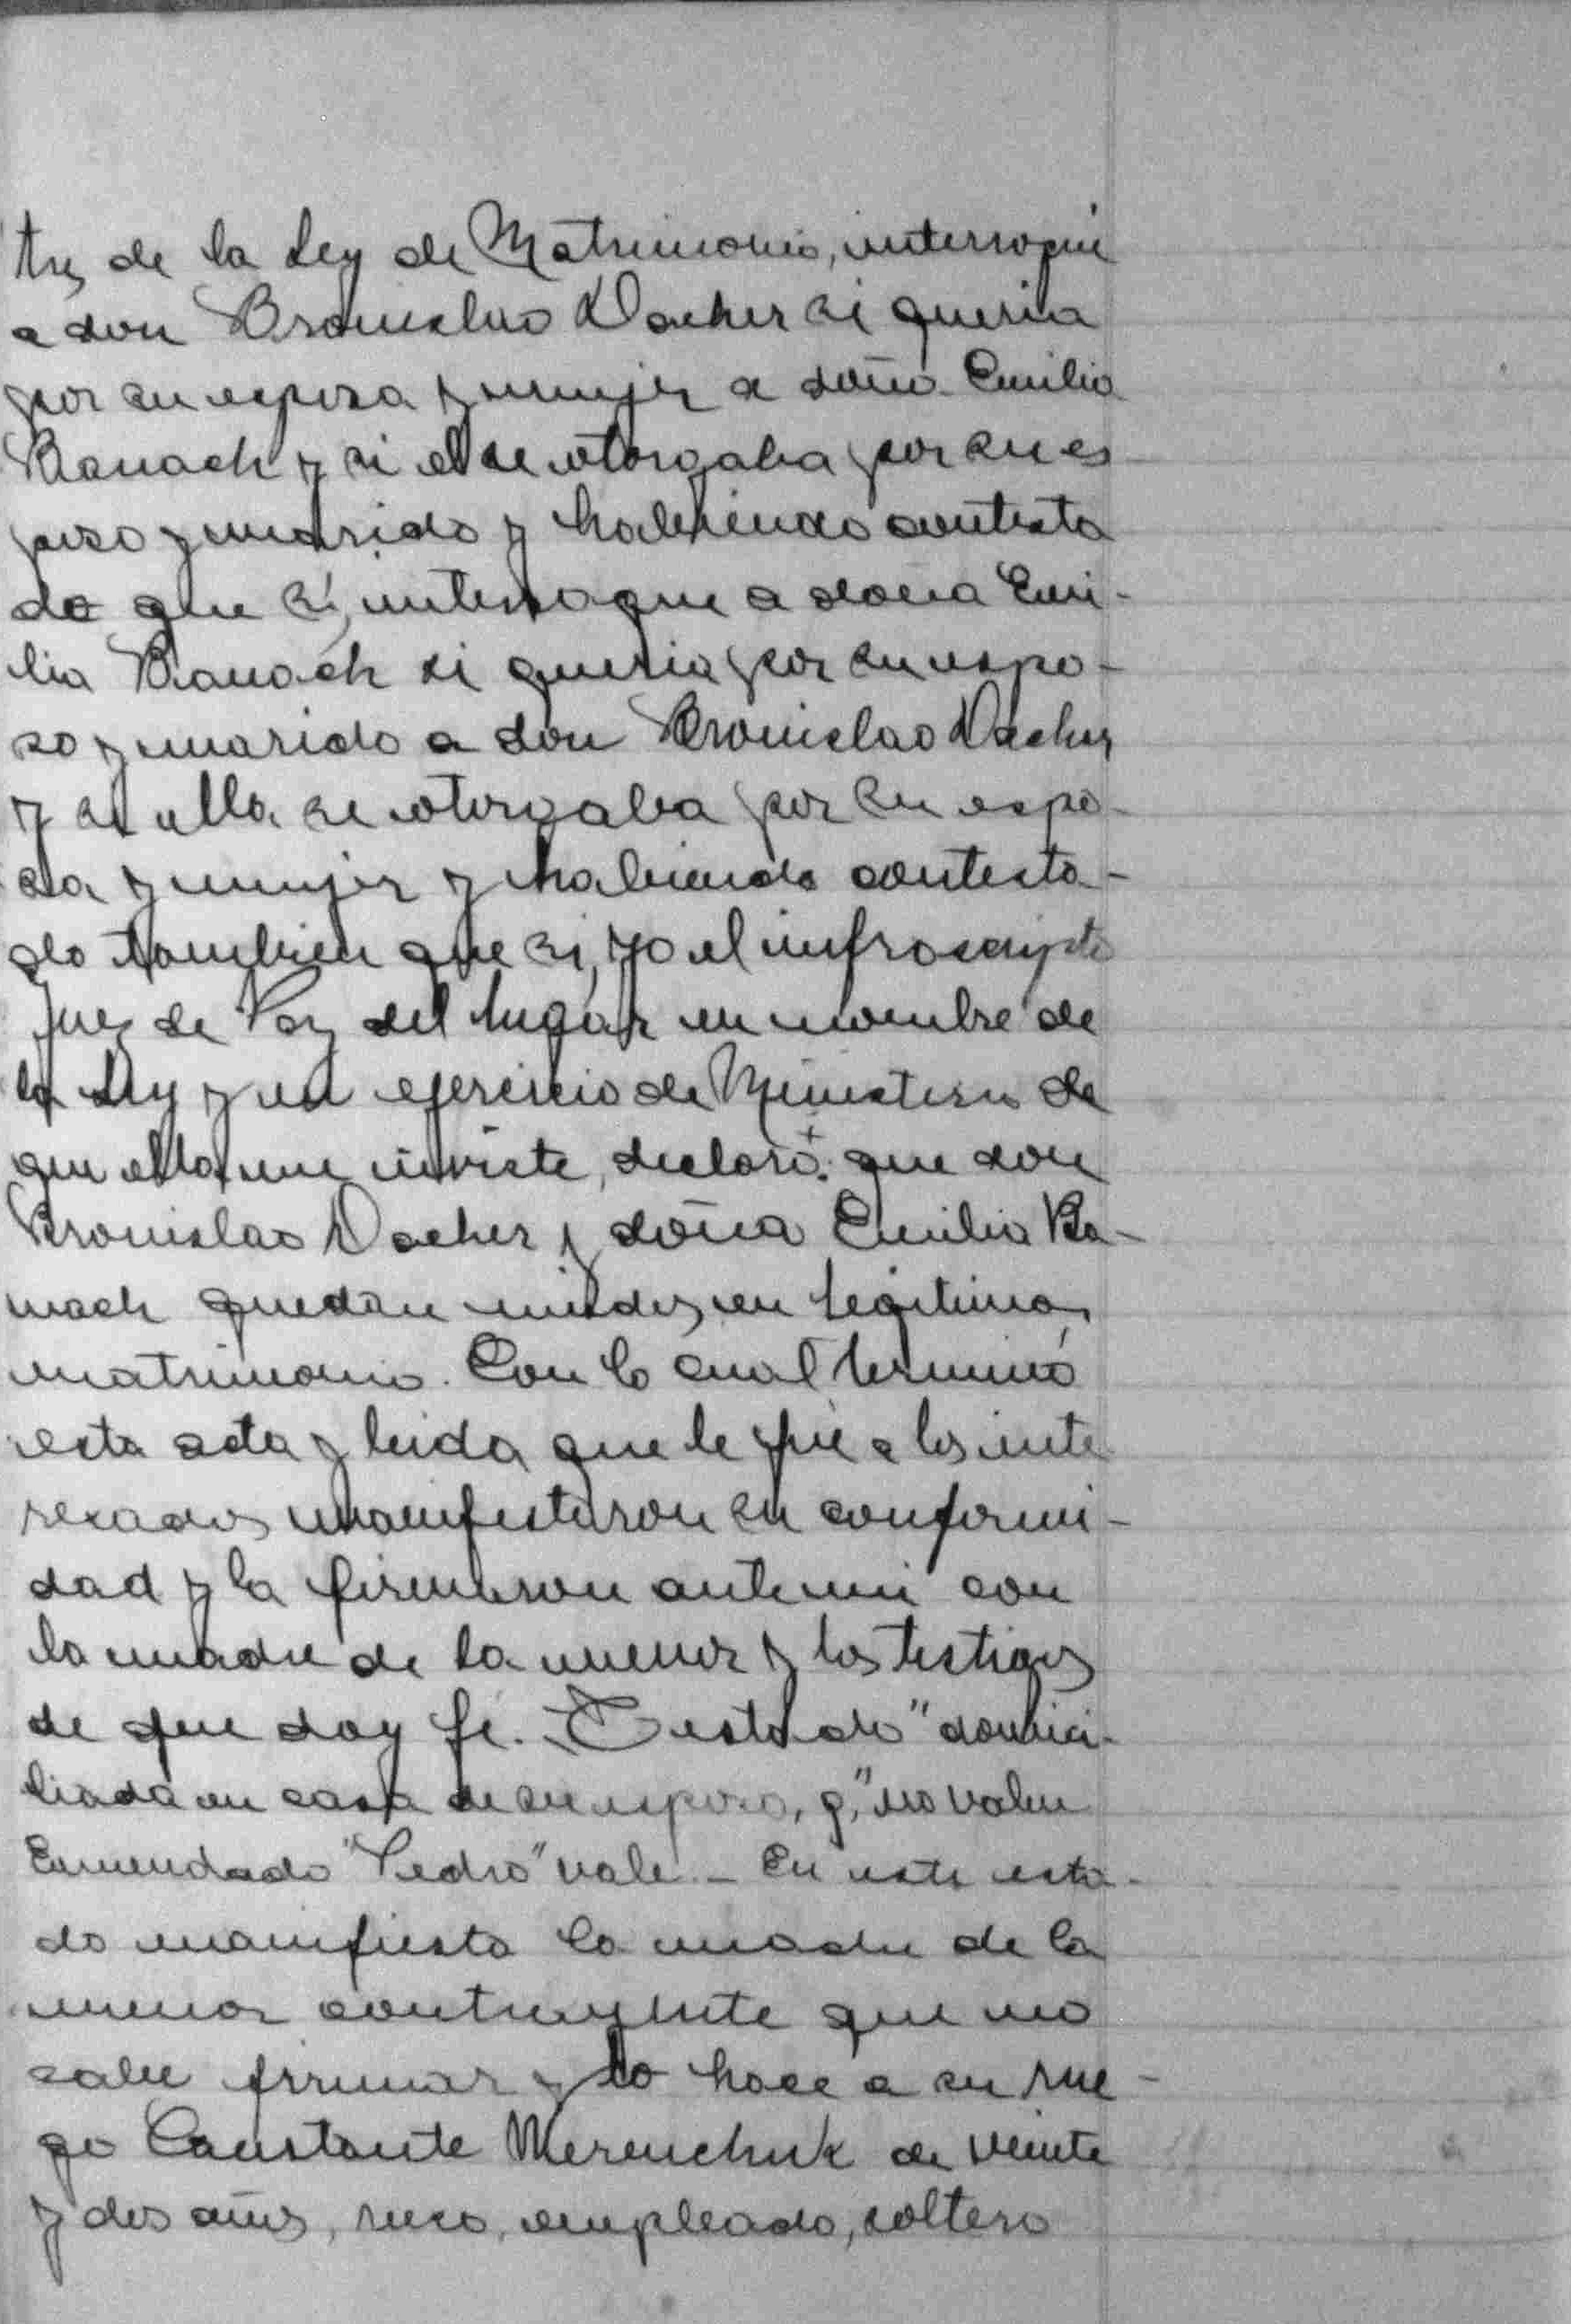 tres de la Ley de Matrimonio, interrogué
a don Bronislao Dacher si queria
por su esposa y mujer a doña Emilia
Banach y si el se otorgaba por su es
poso y marido y habiendo contesta
do que si, interrogue a doña Emi-
lia Banach si queria por su espo-
so y marido a don Bronislao Dacher
y si ella se otorgaba por su espo-
sa y mujer y habiendo contesta-
do tambien que si, yo el infrascripto
Juez de Paz del lugar en nombre de
la Ley y en ejercicio de Ministerio de
que ella me inviste, declaro: que don
Bronislao Dacher y doña Emilia Ba-
nach quedan unidos en legitimo
matrimonio. Con lo cual terminó
esta acta y leida que le fué a los inte
resados manifestaron su conformi-
dad y la firmaron ante mi con
la madre de la menor y los testigos
de que doy fé. Testado "domici-
liada en casa de su esposo, y," no valen
Enmendado "Pedro" vale. - En este esta-
do manifiesta la madre de la
menor contrayente que no
sabe firmar y lo hace a su rue-
go Constante Merenchuk de veinte
y dos años, ruso, empleado, soltero